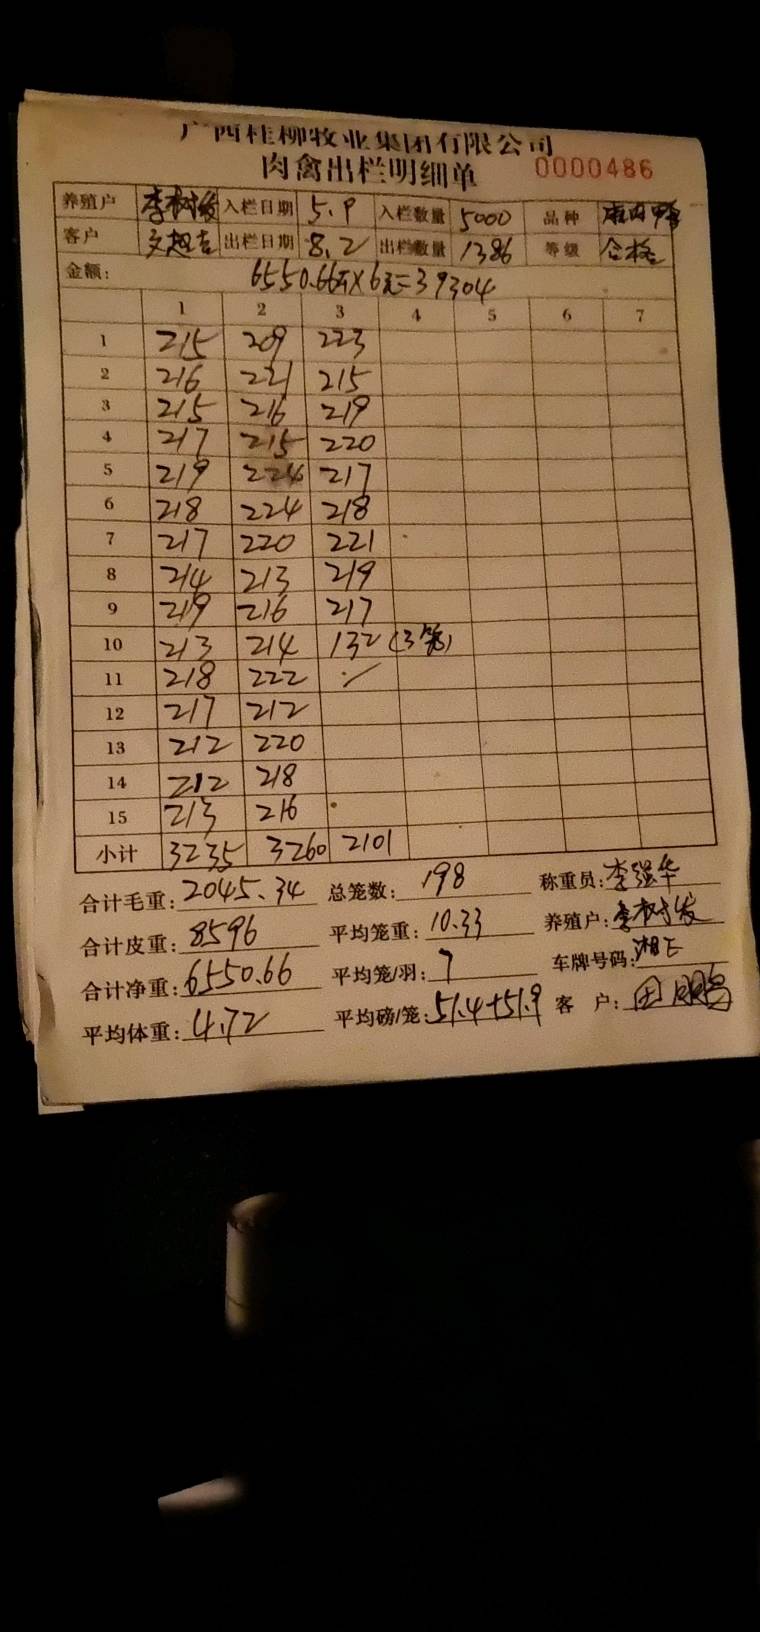 广西桂柳牧业集团有限公司
肉禽出栏明细单 0000486
养殖户 李树发 入栏日期 5.9 入栏数量 5000 品种 麻肉鸭
客户 出栏日期 8.2 出栏数量 1386 等级 合格
金额: 6550.66斤×6元=39304
1 2 3 4 5 6 7
1 215 209 223
2 216 221 215
3 215 216 219
4 217 215 220
5 219 224 217
6 218 224 218
7 217 220 221
8 214 213 219
9 219 216 217
10 213 214 132 (3笼)
11 218 222
12 217 212
13 212 220
14 212 218
15 213 216
小计 3235 3260 2101
合计毛重: 2045.34 总笼数: 198 称重员: 李强华
合计皮重: 8596 平均笼重: 10.33 养殖户: 李树发
合计净重: 6550.66 平均笼/羽: 7 车牌号码: 湘E
平均体重: 4.72 平均磅/笼: 51.4+51.9 客 户: 田